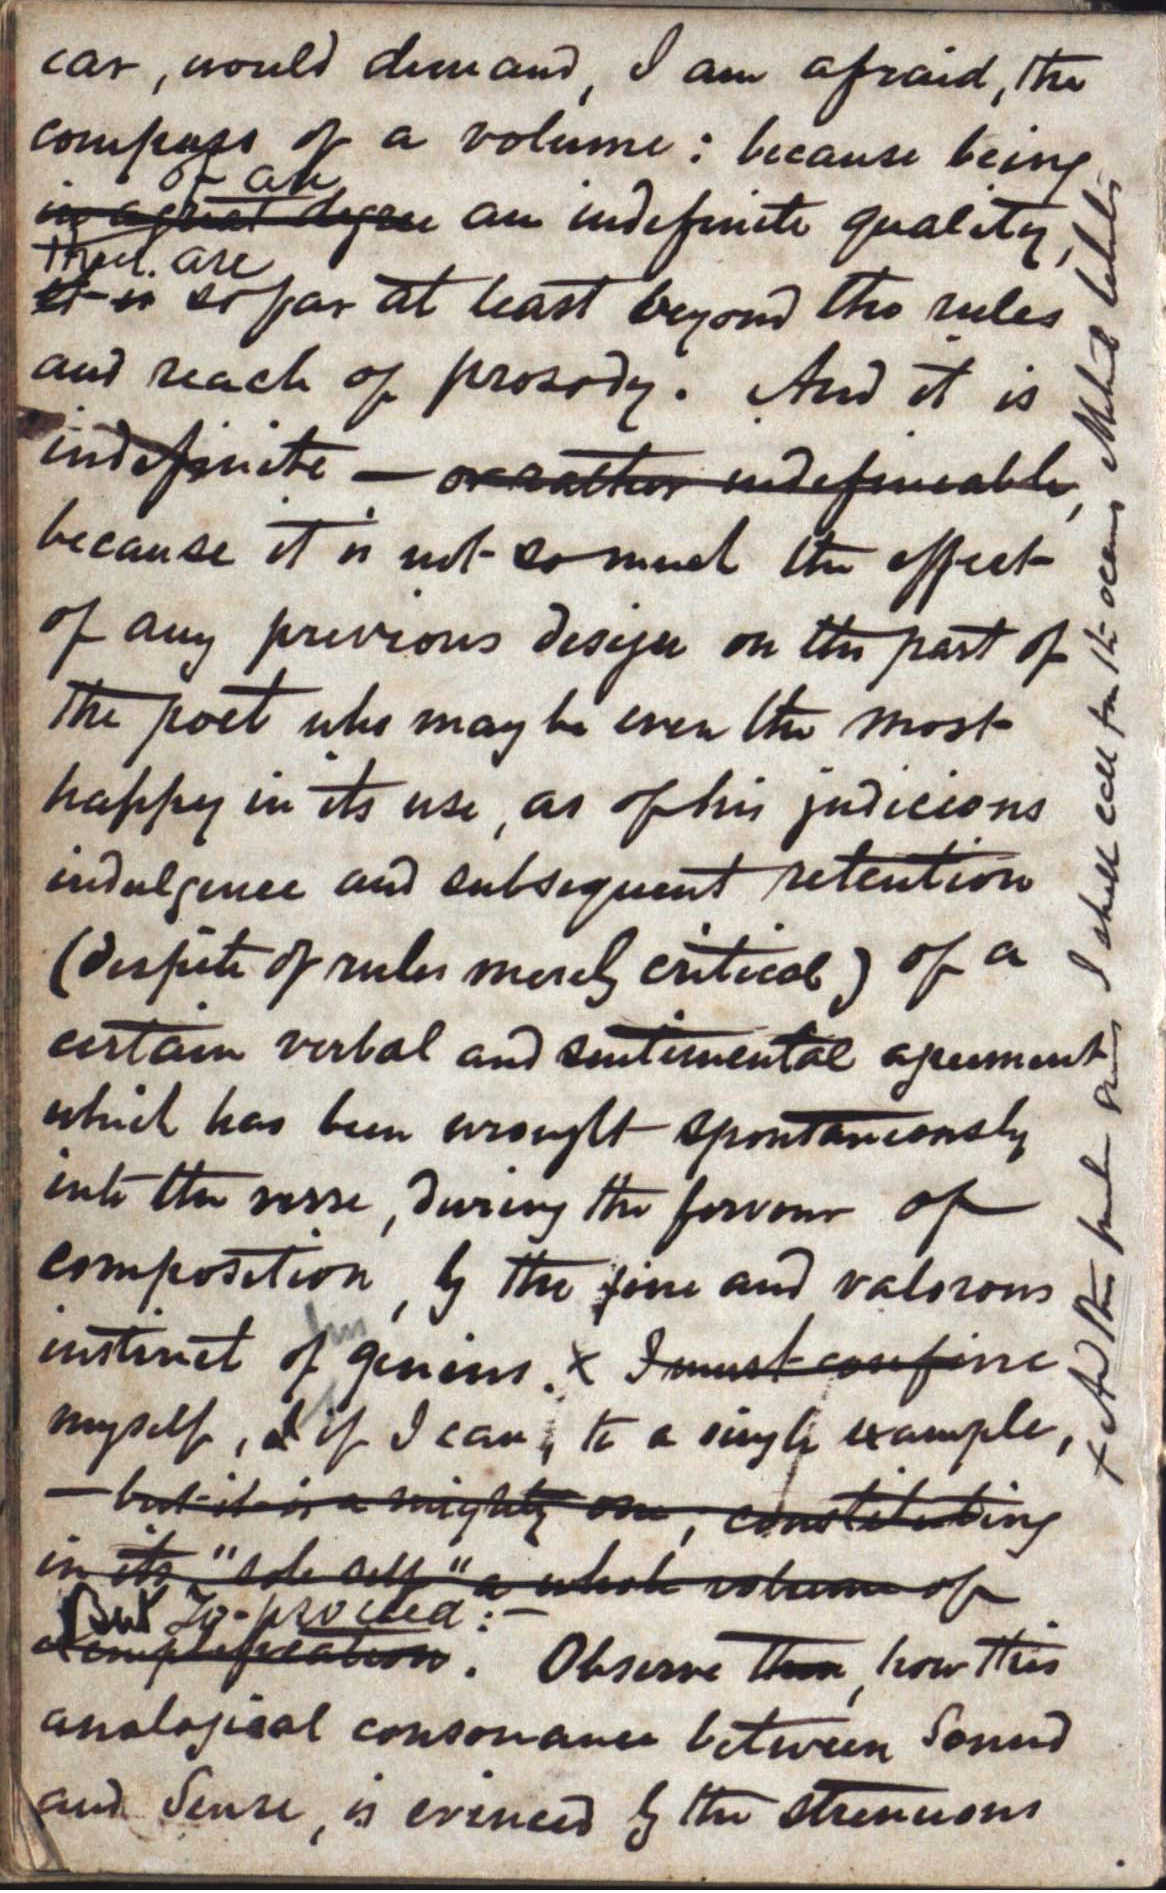 ear, would demand, I am afraid, the
compass of a volume: because being
of an
in a great degree an indefinite quality,
They are
it is so far at least beyond the rules
and reach of prosody. And it is
indefinite — or rather indefineable,
because it is not so much the effect
of any previous design on the part of
the poet who may be even the most
happy in its use, as of his judicious
indulgence and subsequent retention
(despite of rules merely critical) of a
certain verbal and sentimental agreement
which has been wrought spontaneously
into the verse, during the fervour of
composition, by the fine and valorous
his
instinct of genius. x I must confine
myself, if I can, to a single example,
— but it is a mighty one, constituting
in its "sole self" a whole volume of
But To proceed:—
exemplification. Observe then, how this
analogical consonance between Sound
and Sense, is evinced by the strenuous
x And this I shall call for the